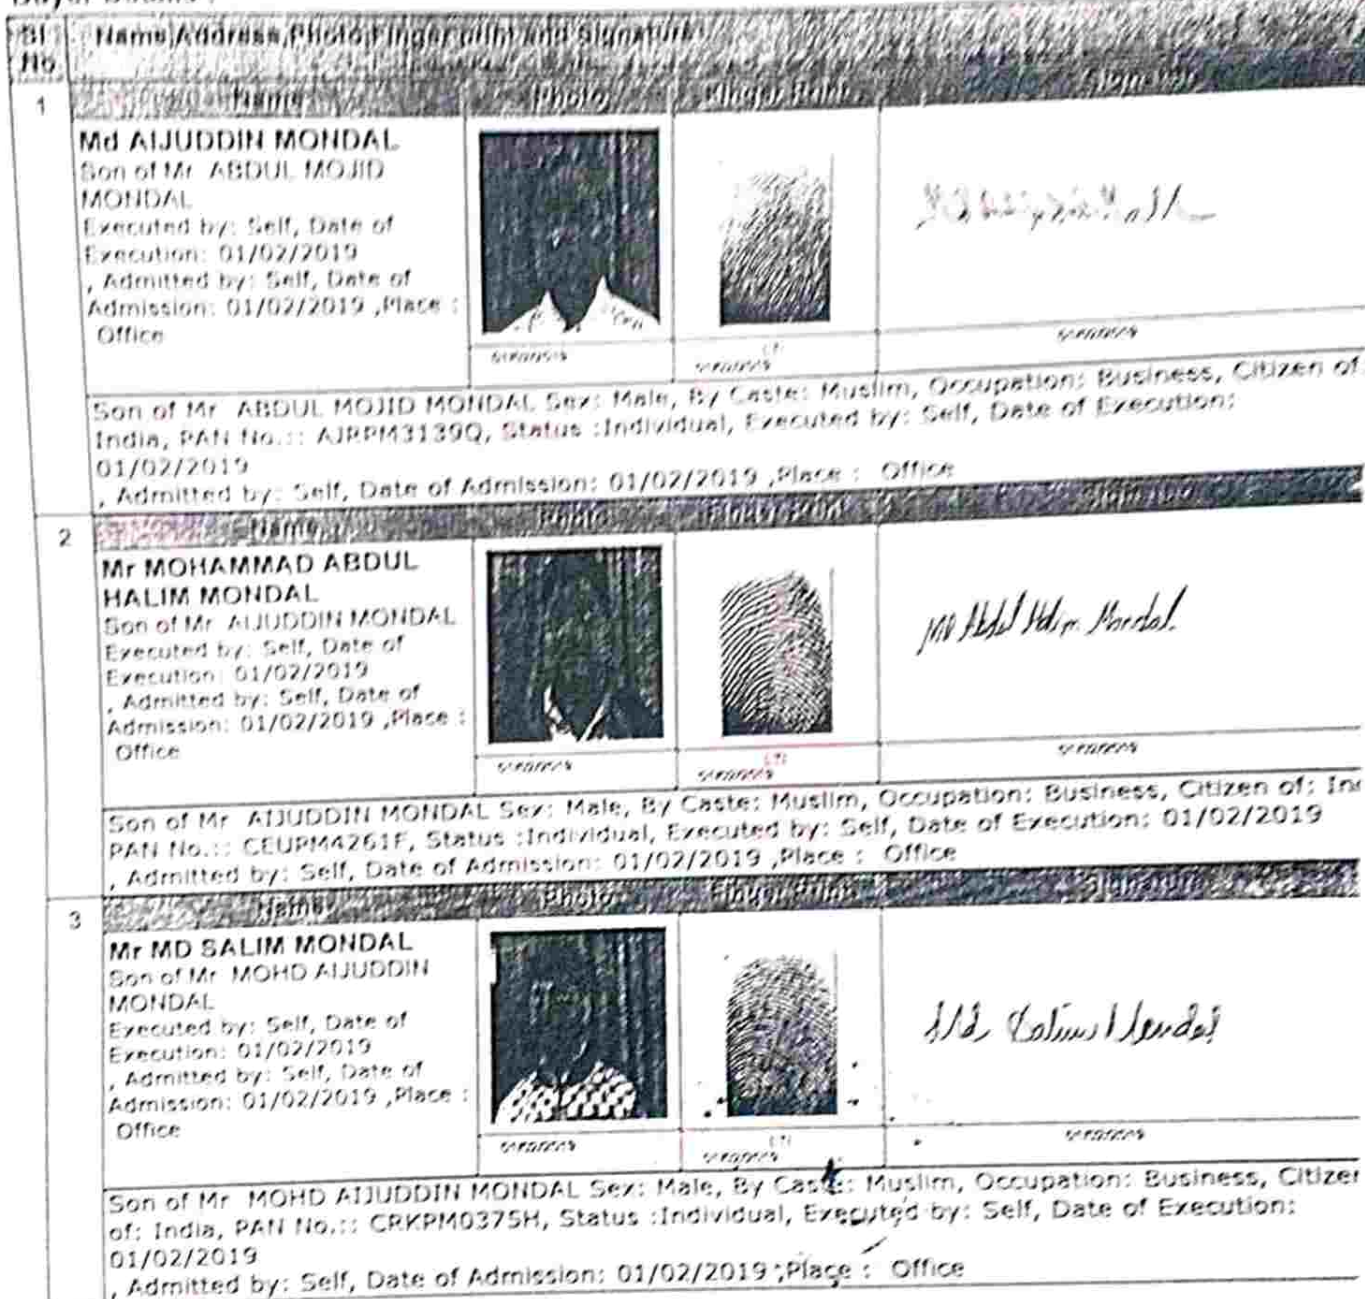 Buyer Details :
Sl No
Name,Address,Photo,Finger print and Signature
1
Name Photo Finger Print Signature
Md AIJUDDIN MONDAL
Son of Mr ABDUL MOJID
MONDAL
Executed by: Self, Date of
Execution: 01/02/2019
, Admitted by: Self, Date of
Admission: 01/02/2019 ,Place :
Office
01/02/2019
LTI
01/02/2019
01/02/2019
Son of Mr ABDUL MOJID MONDAL Sex: Male, By Caste: Muslim, Occupation: Business, Citizen of:
India, PAN No.:: AJRPM3139Q, Status :Individual, Executed by: Self, Date of Execution:
01/02/2019
, Admitted by: Self, Date of Admission: 01/02/2019 ,Place : Office
2
Name Photo Finger Print Signature
Mr MOHAMMAD ABDUL
HALIM MONDAL
Son of Mr AIJUDDIN MONDAL
Executed by: Self, Date of
Execution: 01/02/2019
, Admitted by: Self, Date of
Admission: 01/02/2019 ,Place :
Office
Md Abdul Halim Mondal.
01/02/2019
LTI
01/02/2019
01/02/2019
Son of Mr AIJUDDIN MONDAL Sex: Male, By Caste: Muslim, Occupation: Business, Citizen of: In
PAN No.:: CEUPM4261F, Status :Individual, Executed by: Self, Date of Execution: 01/02/2019
, Admitted by: Self, Date of Admission: 01/02/2019 ,Place : Office
3
Name Photo Finger Print Signature
Mr MD SALIM MONDAL
Son of Mr MOHD AIJUDDIN
MONDAL
Executed by: Self, Date of
Execution: 01/02/2019
, Admitted by: Self, Date of
Admission: 01/02/2019 ,Place :
Office
Md Salim Mondal
01/02/2019
LTI
01/02/2019
01/02/2019
Son of Mr MOHD AIJUDDIN MONDAL Sex: Male, By Caste: Muslim, Occupation: Business, Citizen
of: India, PAN No.:: CRKPM0375H, Status :Individual, Executed by: Self, Date of Execution:
01/02/2019
, Admitted by: Self, Date of Admission: 01/02/2019 ,Place : Office